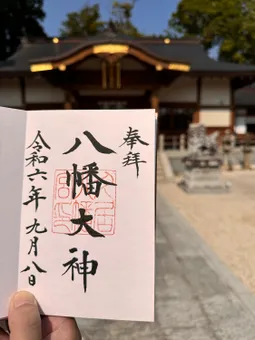 奉拝
八幡大神
令和六年九月八日